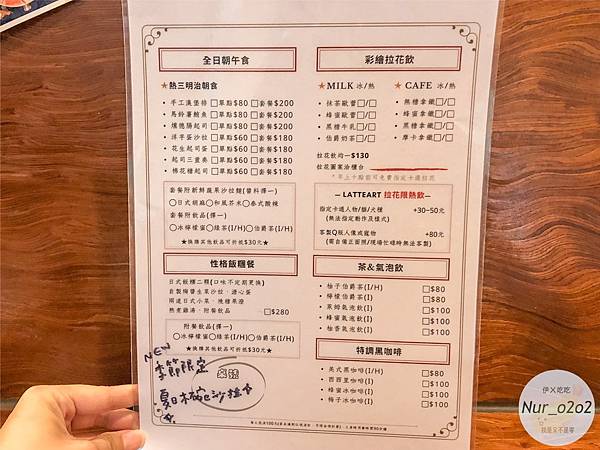 全日朝午食
★熱三明治朝食
• 手工漢堡排 □單點$80 □套餐$200
• 馬鈴薯鮪魚 □單點$80 □套餐$200
• 燻德腸起司 □單點$80 □套餐$200
• 洋芋蛋沙拉 □單點$60 □套餐$180
• 花生起司蛋 □單點$60 □套餐$180
• 起司三重奏 □單點$60 □套餐$180
• 棉花糖起司 □單點$60 □套餐$180
套餐附新鮮蔬果沙拉麵(醬料擇一)
○日式胡麻○和風芥末○泰式酸辣
套餐附飲品(擇一)
○冰檸檬蜜○綠茶(I/H)○伯爵茶(I/H)
★換購其他飲品可折抵$30元★
性格飯糰餐
日式飯糰二顆(口味不定期更換)
自製梅醬生菜沙拉、溏心蛋
兩道日式小菜、幾種果澄
熱煮雞湯、附餐飲品 □$280
附餐飲品(擇一)
○冰檸檬蜜○綠茶(I/H)○伯爵茶(I/H)
★換購其他飲品可折抵$30元★
NEW
季節限定
夏日木碗沙拉
彩繪拉花飲
★MILK 冰/熱
• 抹茶歐蕾□/□
• 蜂蜜歐蕾□/□
• 黑糖牛乳□/□
• 伯爵奶茶□/□
★CAFE 冰/熱
• 無糖拿鐵□/□
• 蜂蜜拿鐵□/□
• 黑糖拿鐵□/□
• 摩卡拿鐵□/□
拉花飲均一$130
拉花圖案洽櫃台
*早上十點前可免費指定卡通拉花
— LATTEART 拉花限熱飲—
指定卡通人物/貓/犬種 +30~50元
(無法指定動作及樣式)
客製Q版人像或寵物 +80元
(需自備正面照/現場忙碌時無法客製)
茶&氣泡飲
• 柚子伯爵茶(I/H) □$80
• 檸檬伯爵茶(I) □$80
• 萊姆氣泡飲(I) □$100
• 蜂蜜氣泡飲(I) □$100
• 柚香氣泡飲(I) □$100
特調黑咖啡
• 美式黑咖啡(I/H) □$80
• 西西里咖啡(I) □$100
• 蜂蜜冰咖啡(I) □$100
• 梅子冰咖啡(I) □$100
伊X吃吃
Nur_o2o2
我是又不是零